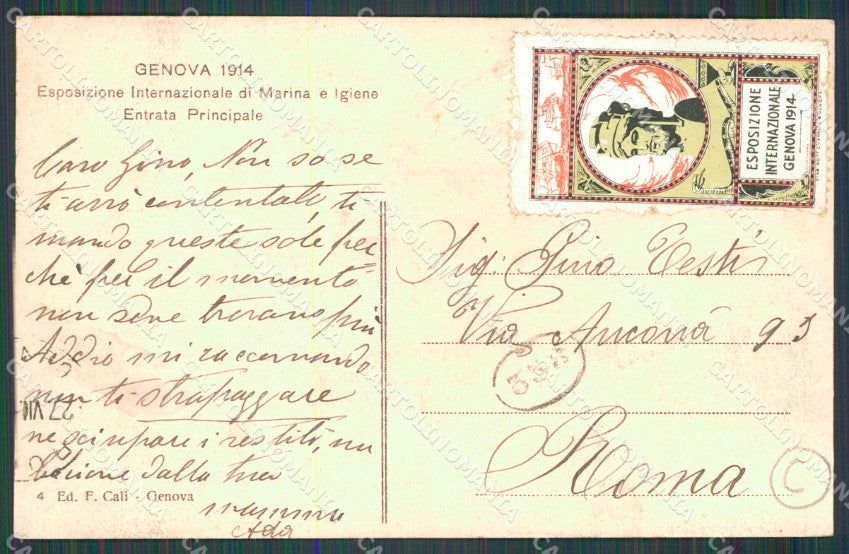 GENOVA 1914
Esposizione Internazionale di Marina e Igiene
Entrata Principale
Caro Gino, Non so se
ti avrò contentato, ti
mando queste sole per
chè per il momento
non se ne trovano più
Addio mi raccomando
non ti strapazzare
nè sciupare i vestiti, un
bacione dalla tua
mamma
Ada
4 Ed. F. Calì - Genova
27 VII
ESPOSIZIONE
INTERNAZIONALE
GENOVA 1914
Sig. Gino Testi
Via Ancona 93
Roma
C
CARTOLINOMANIA